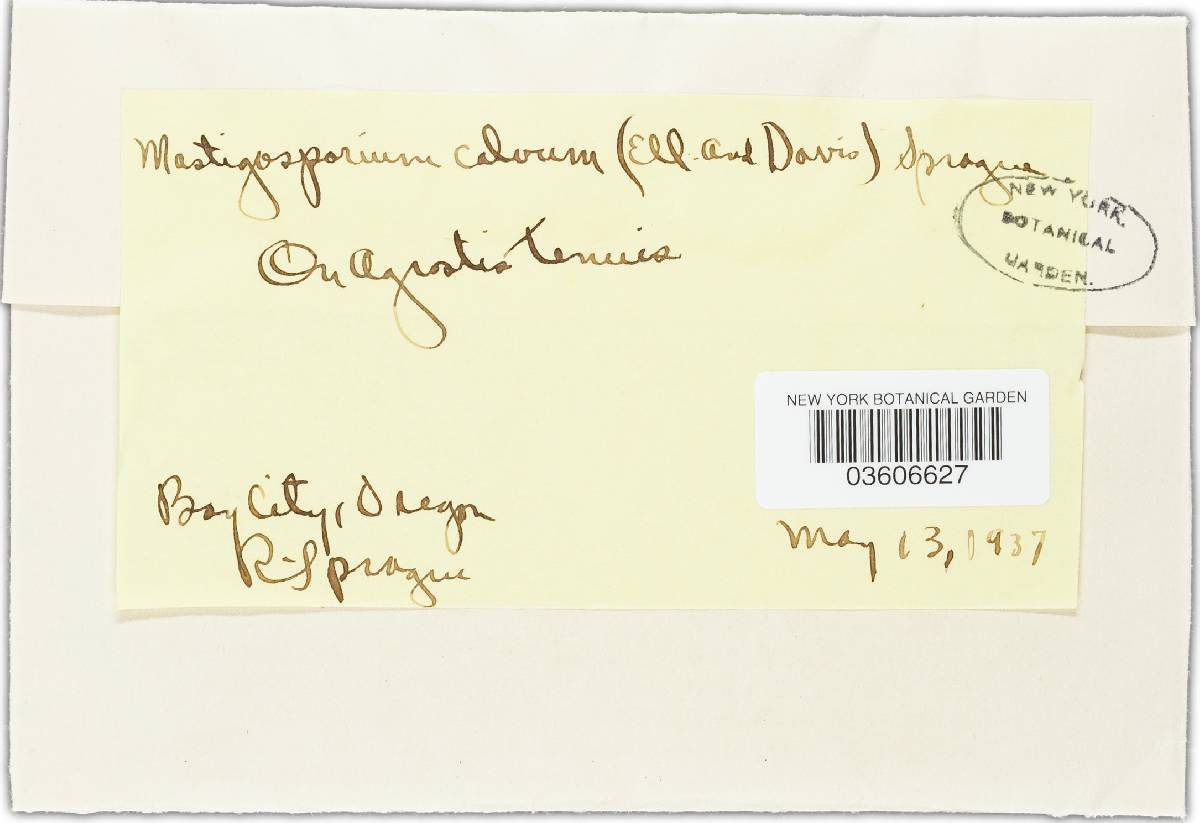 Mastigosporium calvum (Ell. and Davis) Sprague
On Agrostis tenuis
NEW YORK
BOTANICAL
GARDEN.
NEW YORK BOTANICAL GARDEN
03606627
Bay City, Oregon
R. Sprague
May 13, 1937